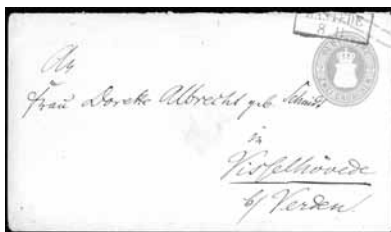 RASTEDE
An
Frau Dorette Albrecht geb. Schmidt
in
Visselhövede
b/ Verden.